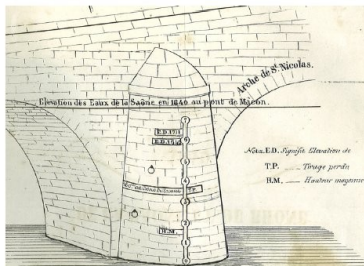 Arche de St. Nicolas.
Elevation des Eaux de la Saône en 1840 au pont de Mâcon.
7
E.D. 1711
6
5
4
3
2
H.M.
1
0
Nota. E.D. Signifie Elevation de
T.P. — Tirage perdu
H.M. — Hauteur moyenne